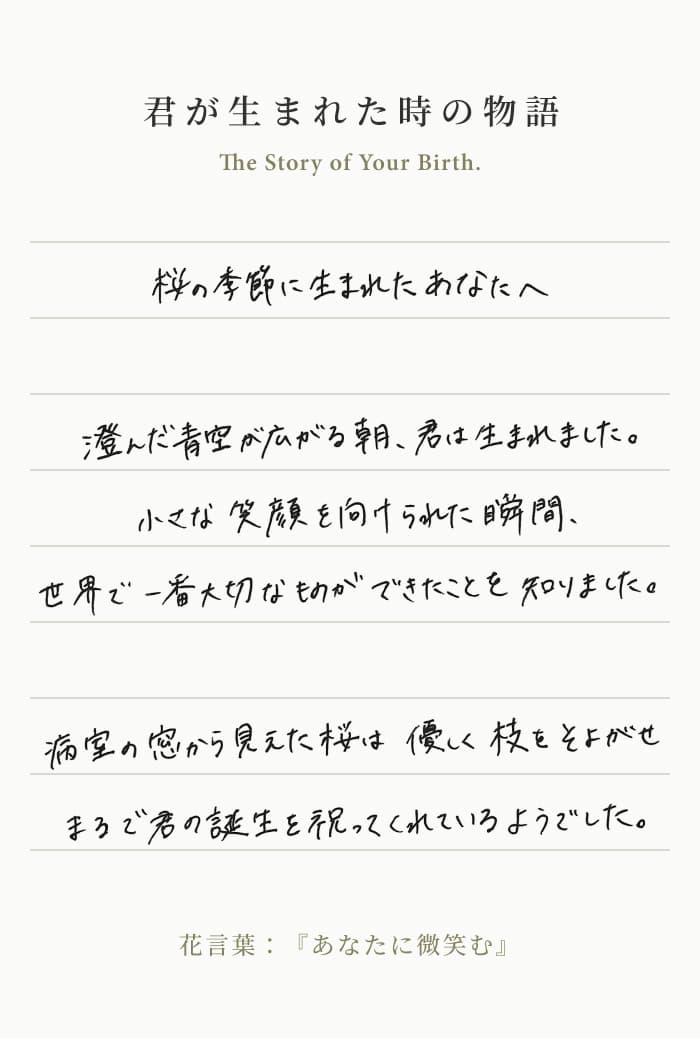 君が生まれた時の物語
The Story of Your Birth.
桜の季節に生まれたあなたへ
澄んだ青空が広がる朝、君は生まれました。
小さな笑顔を向けられた瞬間、
世界で一番大切なものができたことを知りました。
病室の窓から見えた桜は 優しく 枝をそよがせ
まるで君の誕生を祝ってくれているようでした。
花言葉：『あなたに微笑む』